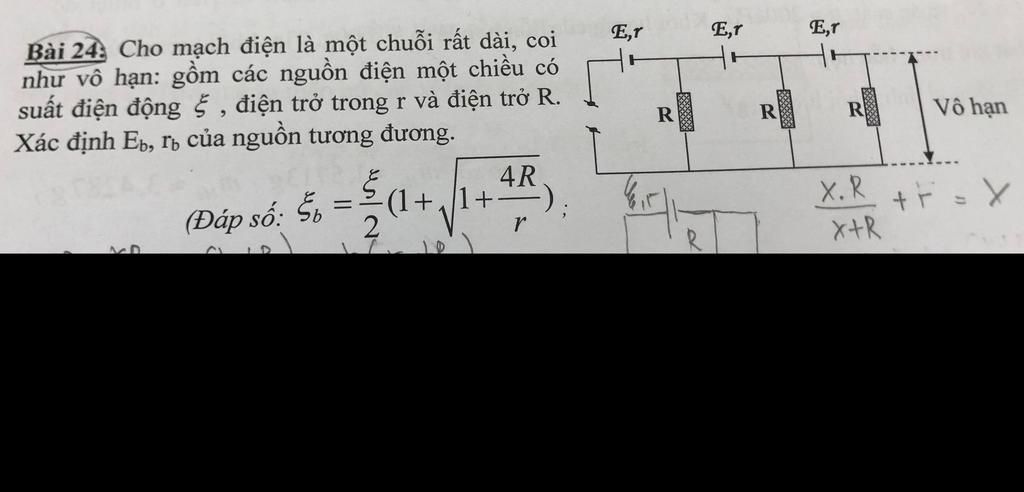 Bài 24: Cho mạch điện là một chuỗi rất dài, coi
như vô hạn: gồm các nguồn điện một chiều có
suất điện động ξ , điện trở trong r và điện trở R.
Xác định E_b, r_b của nguồn tương đương.
(Đáp số: ξ_b = ξ/2 (1+√(1+4R/r)) ;
E,r E,r E,r
R R R Vô hạn
ξ,r
R
X.R/(X+R) + r = X